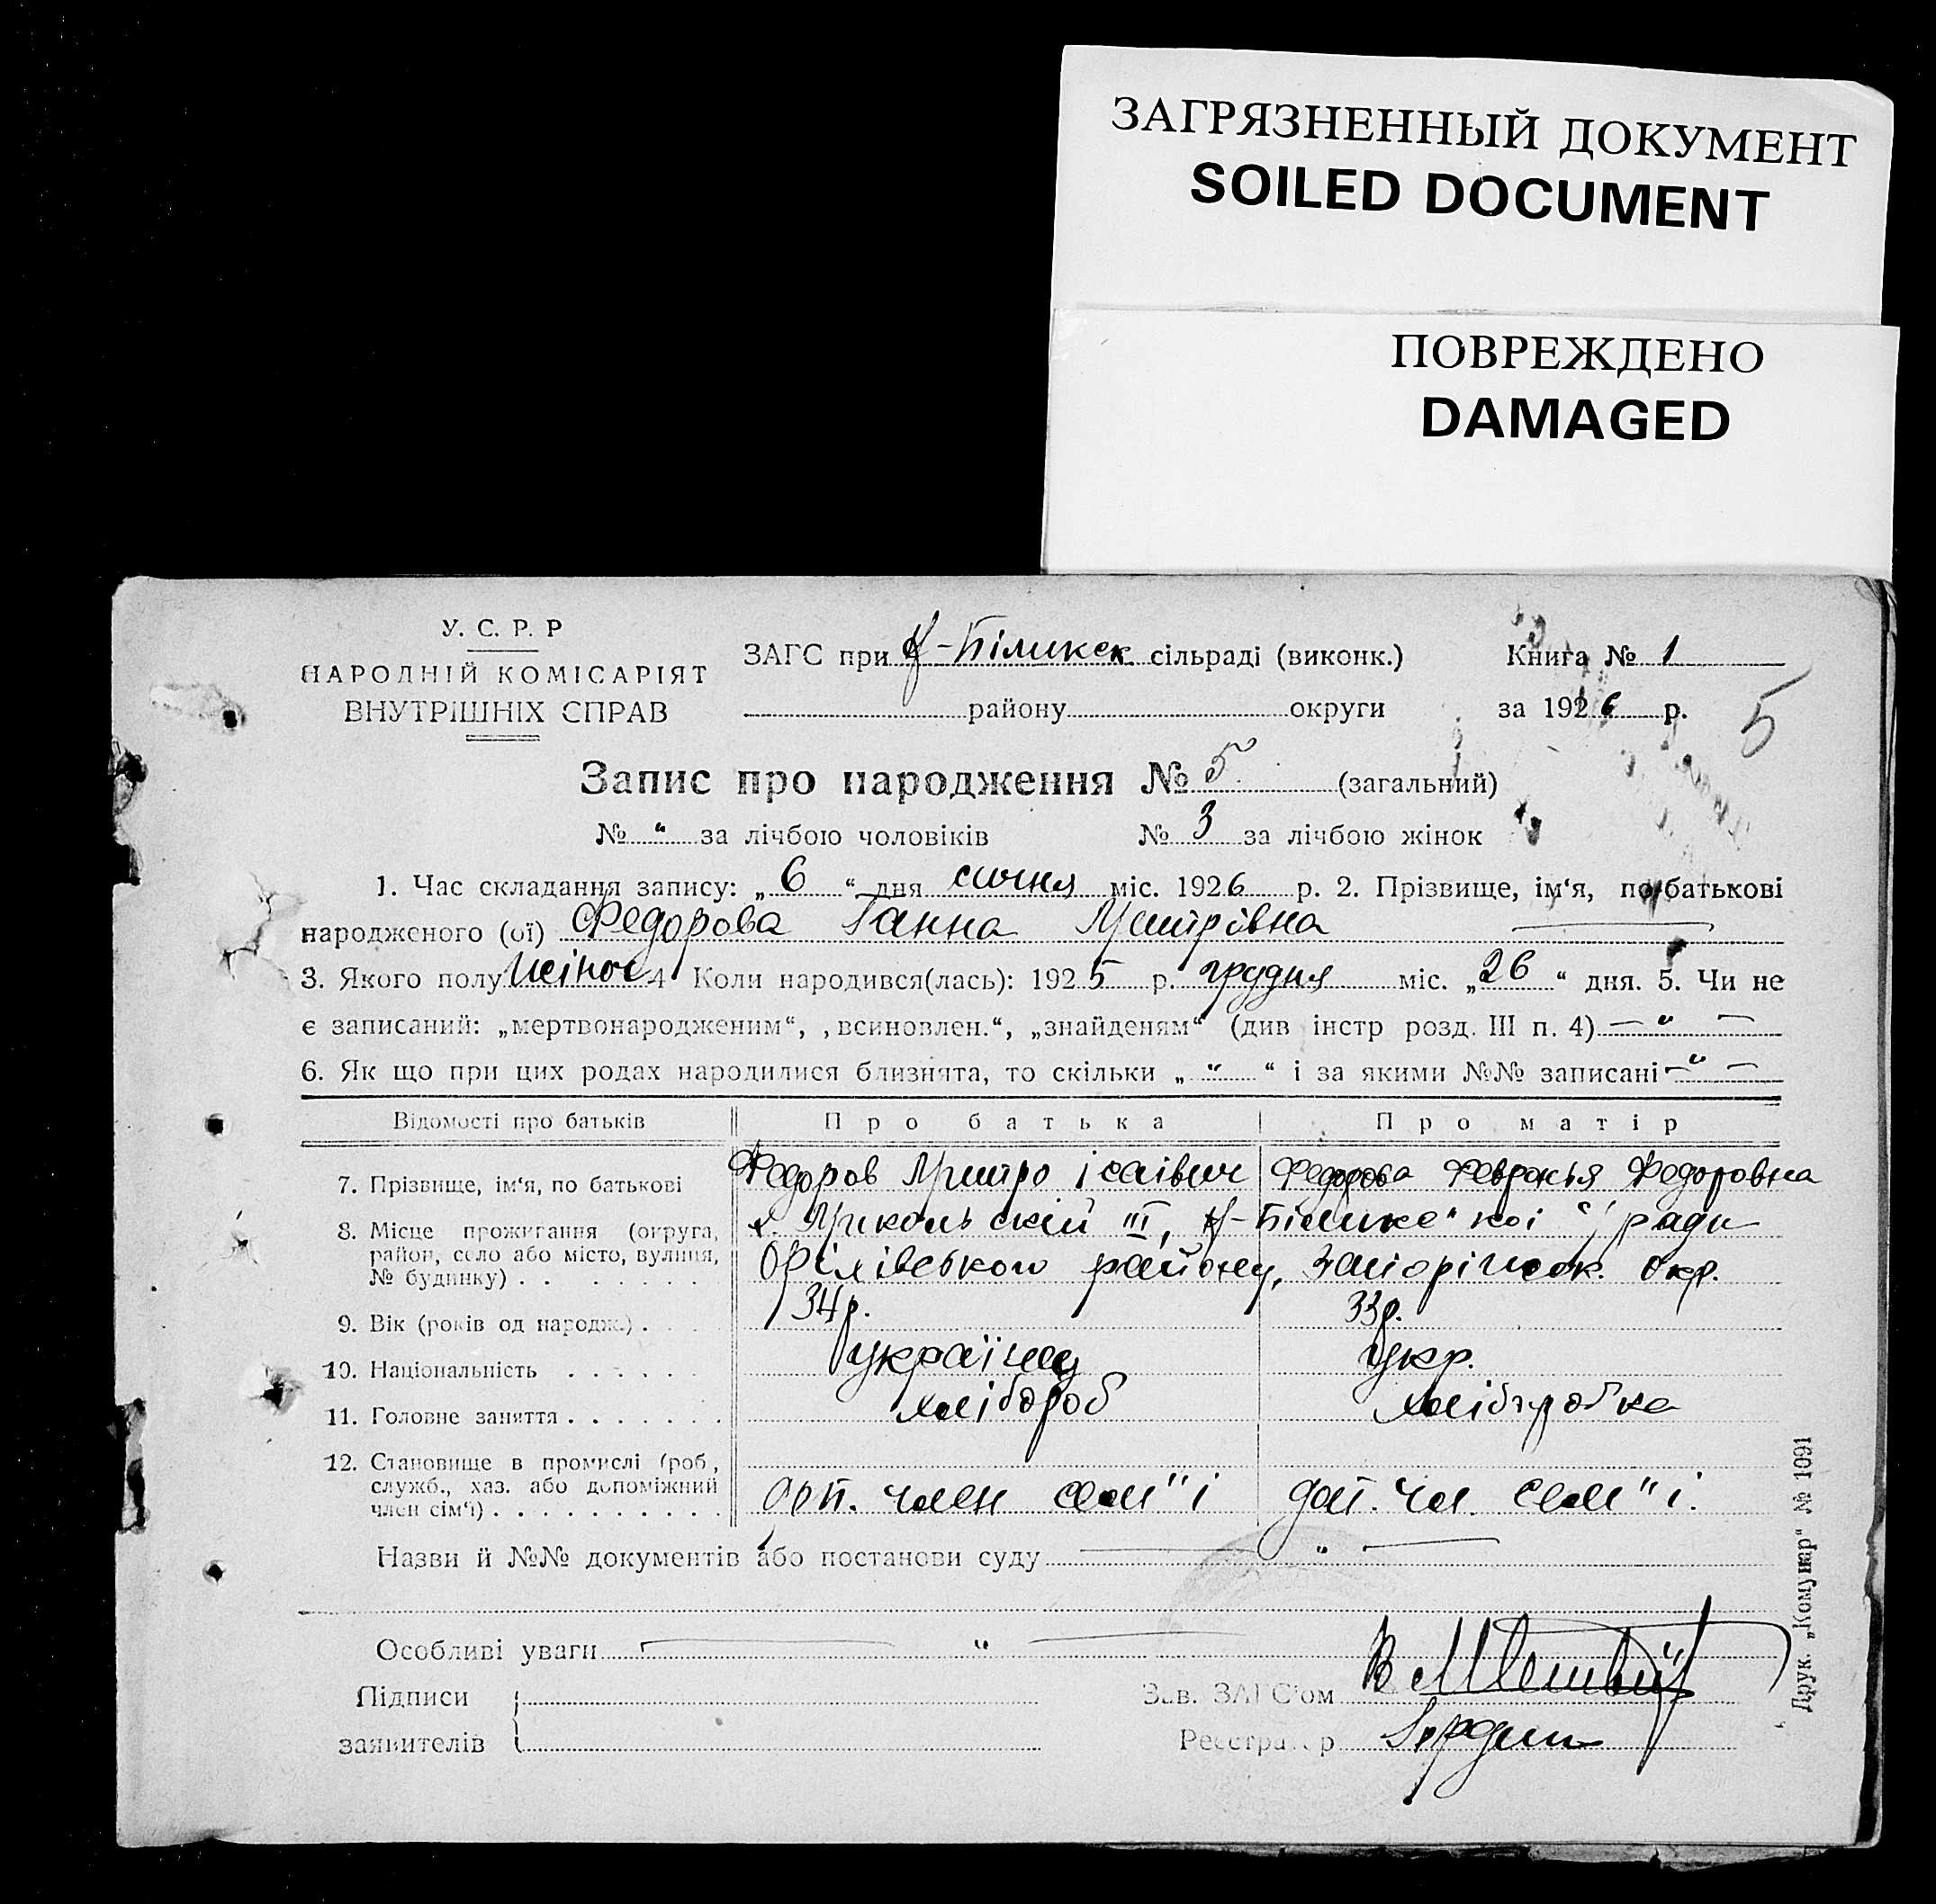 ЗАГРЯЗНЕННЫЙ ДОКУМЕНТ
SOILED DOCUMENT
ПОВРЕЖДЕНО
DAMAGED
У. С. Р. Р
НАРОДНІЙ КОМІСАРІЯТ
ВНУТРІШНІХ СПРАВ
ЗАГС при -Біликск сільраді (виконк.) Книга № 1
району округи за 1926 р. 5
Запис про народження № 5 (загальний)
№ " за лічбою чоловіків № 3 за лічбою жінок
1. Час складання запису: „ 6 “ дня січня міс. 1926 р. 2. Прізвище, ім‘я, по батькові
народженого (ої) Федорова Ганна Дмитрівна
3. Якого полу жіноч 4 Коли народився(лась): 1925 р. грудня міс. „ 26 “ дня. 5. Чи не
є записаний: „мертвонародженим“, „всиновлен.“, „знайденям“ (див інстр розд. III п. 4) — " —
6. Як що при цих родах народилися близнята, то скільки „ " “ і за якими №№ записані — " —
Відомості про батьків Про батька Про матір
7. Прізвище, ім‘я, по батькові Федоров Дмитро Ісаівич Федорова Февронья Федоровна
8. Місце проживання (округа, район, село або місто, вулиця, № будинку) . . . . . . . .
х. III, -Білике"кої ради
Оріхівського району, Запоріжськ. окр.
9. Вік (років од народж.) . 34р. 33р.
10. Національність . . . . . українец укр.
11. Головне заняття . . . . . . . хлібороб хліборобка
12. Становище в промислі (роб., служб., хаз. або допоміжний член сім‘ї) . . . . . . . . . .
член сем"ї доп. чл. сем"ї.
Назви й №№ документів або постанови суду — " —
Особливі уваги — " —
Підписи
заявителів
Зав. ЗАГС‘ом
Реєстратор
Друк. „Комунар“ № 1091